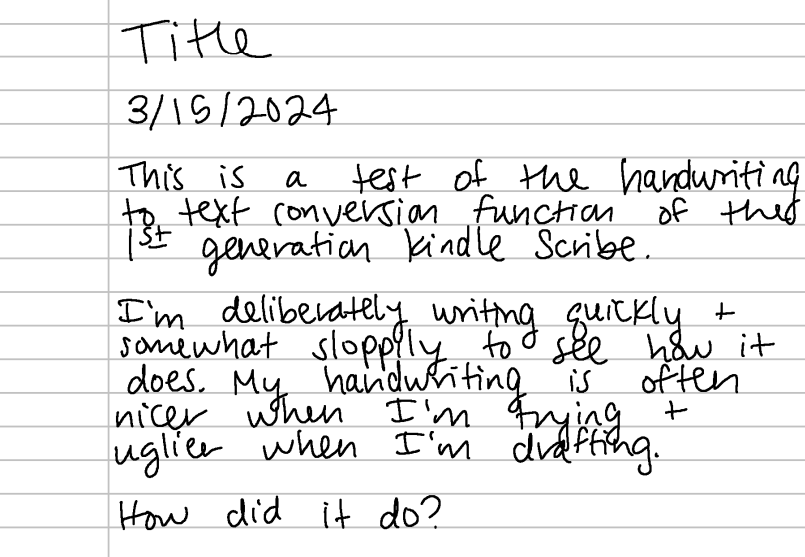 Title
3/15/2024
This is a test of the handwriting
to text conversion function of the
1st generation kindle Scribe.
I'm deliberately writing quickly +
somewhat sloppily to see how it
does. My handwriting is often
nicer when I'm trying +
uglier when I'm drafting.
How did it do?